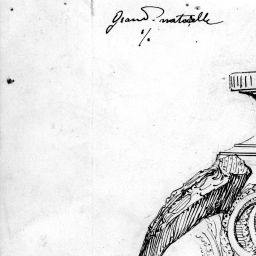 Grand. naturelle
%